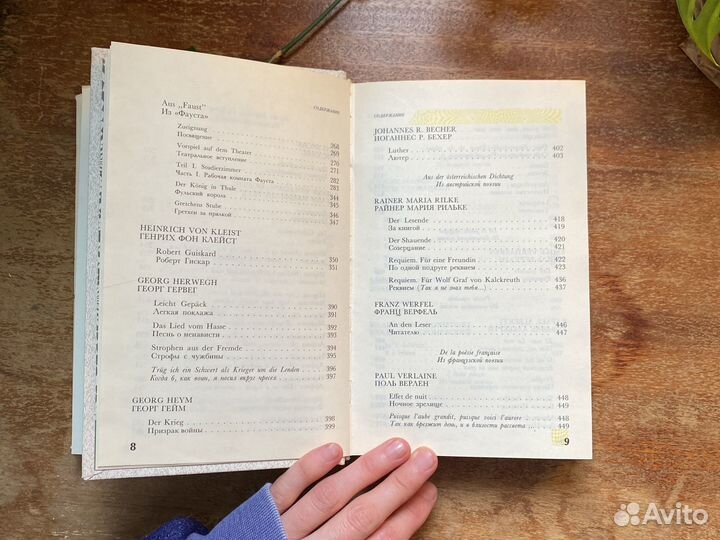 СОДЕРЖАНИЕ
Aus „Faust"
Из «Фауста»
Zueignung
Посвящение 268
Vorspiel auf dem Theater 269
Театральное вступление 270
Teil I. Studierzimmer 271
Часть I. Рабочая комната Фауста 282
Der König in Thule 283
Фульский король 344
Gretchens Stube 345
Гретхен за прялкой 346
347
HEINRICH VON KLEIST
ГЕНРИХ ФОН КЛЕЙСТ
Robert Guiskard 350
Роберт Гискар 351
GEORG HERWEGH
ГЕОРГ ГЕРВЕГ
Leicht Gepäck 390
Легкая поклажа 391
Das Lied vom Hasse 392
Песнь о ненависти 393
Strophen aus der Fremde 394
Строфы с чужбины 395
Trüg ich ein Schwert als Krieger um die Lenden 396
Когда б, как воин, я носил вкруг чресел 397
GEORG HEYM
ГЕОРГ ГЕЙМ
Der Krieg 398
Призрак войны 399
8
СОДЕРЖАНИЕ
JOHANNES R. BECHER
ИОГАННЕС Р. БЕХЕР
Luther 402
Лютер 403
Aus der österreichischen Dichtung
Из австрийской поэзии
RAINER MARIA RILKE
РАЙНЕР МАРИЯ РИЛЬКЕ
Der Lesende 418
За книгой 419
Der Shauende 420
Созерцание 421
Requiem. Für eine Freundin
По одной подруге реквием 422
Requiem. Für Wolf Graf von Kalckreuth 436
Реквием (Так я не знал тебя...) 437
FRANZ WERFEL
ФРАНЦ ВЕРФЕЛЬ
An den Leser 446
Читателю 447
De la poésie française
Из французской поэзии
PAUL VERLAINE
ПОЛЬ ВЕРЛЕН
Effet de nuit 448
Ночное зрелище 449
Puisque l'aube grandit, puisque voici l'aurore 448
Так как брезжит день, и в близости рассвета 449
9
Avito